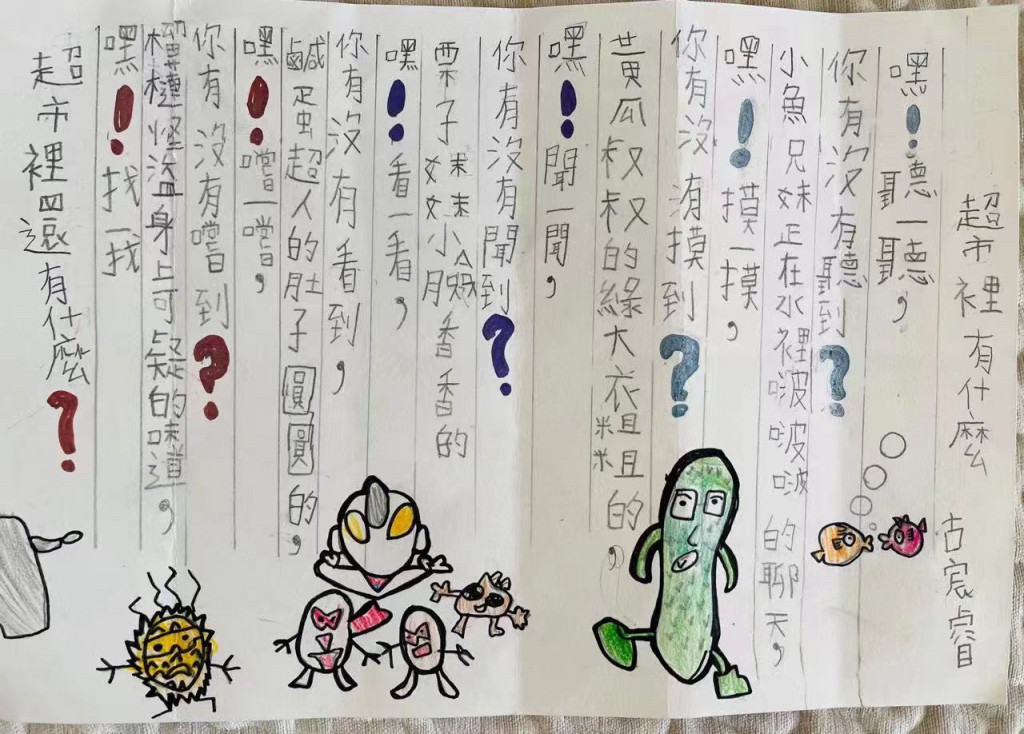 超市裡有什麼 古宸睿
嘿！聽一聽，
你有沒有聽到？
小魚兄妹正在水裡啵啵啵的聊天，
嘿！摸一摸，
你有沒有摸到？
黃瓜叔叔的綠大衣粗粗的，
嘿！聞一聞，
你有沒有聞到？
栗子妹妹小腳香香的
嘿！看一看，
你有沒有看到，
鹹蛋超人的肚子圓圓的，
嘿！嚐一嚐，
你有沒有嚐到？
榴槤怪盜身上可疑的味道，
嘿！找一找
超市裡還有什麼？